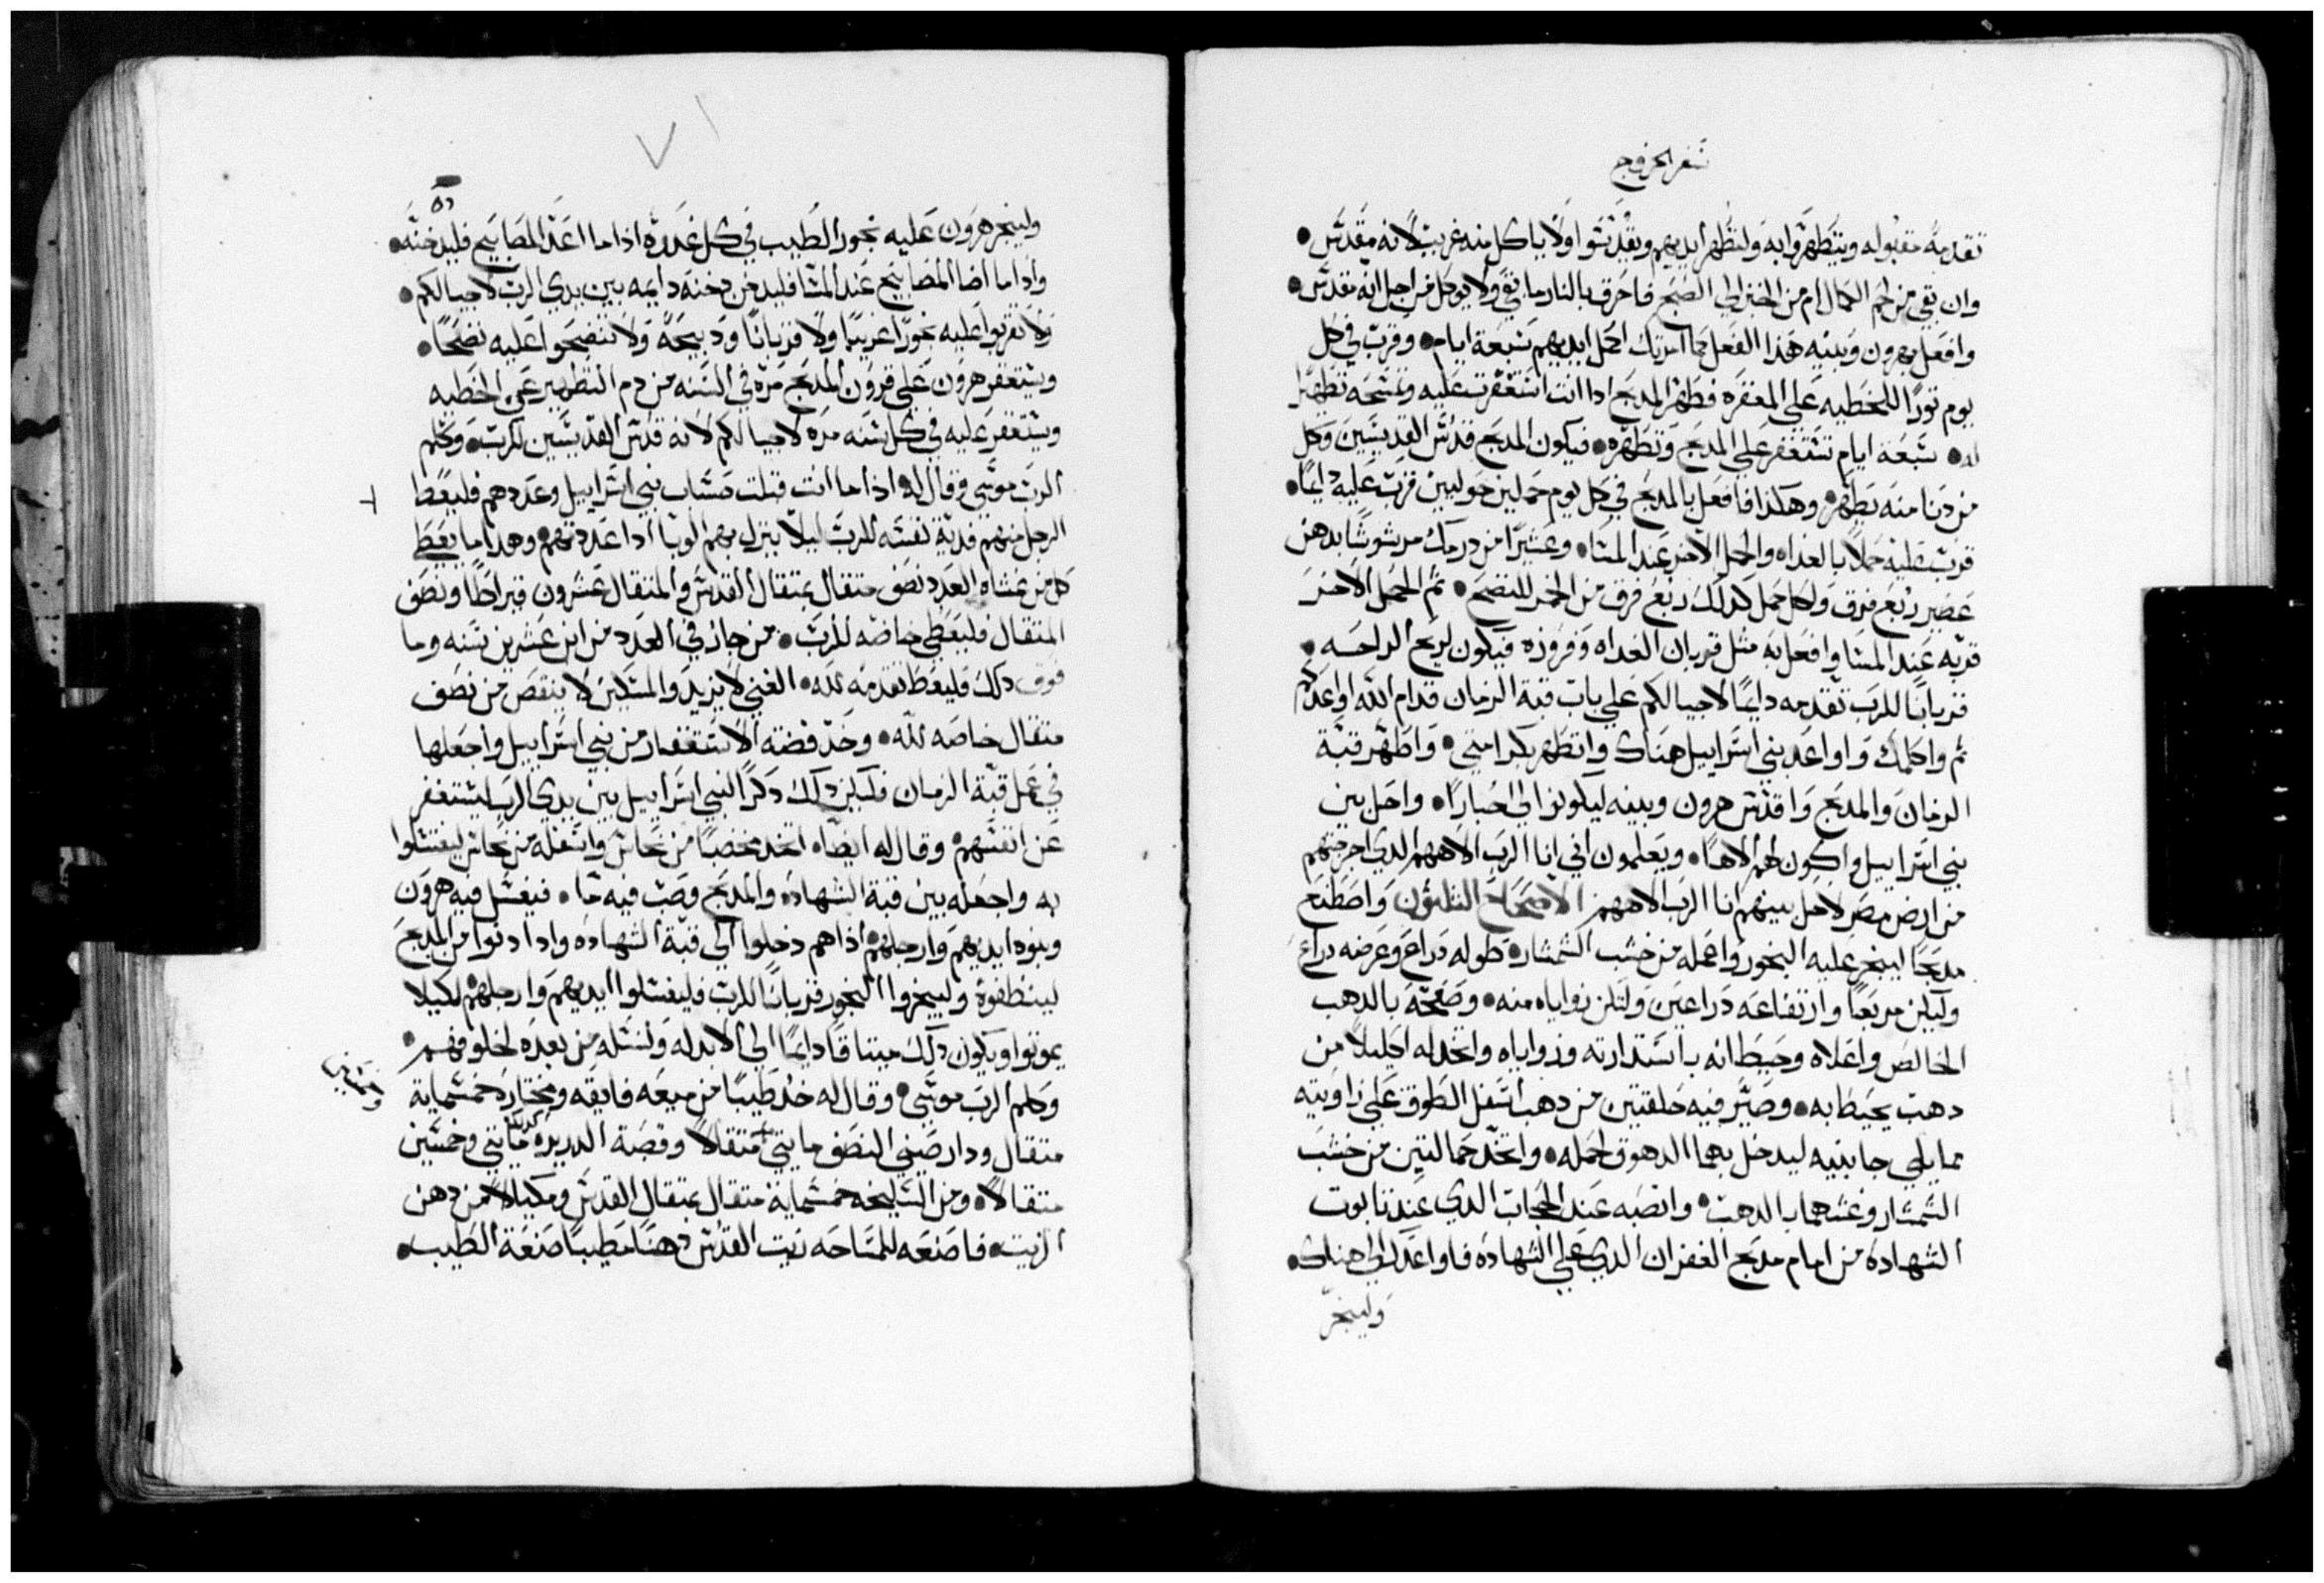 سفر الخروج
تقدمة مقبوله ويتطهروا به ولتطهر ايديهم ويقدسوا ولا ياكل منه غريب لانه مقدس
وان بقي من لحم الكمال ام من الخبز الي الصبح فاحرق بالنار ما بقي ولا يوكل من اجل انه مقدس
وافعل بهرون وبنيه هذا الفعل كما امرتك اكمل ايديهم سبعة ايام وقرب في كل
يوم ثورا للخطيه علي المغفره فطهر المدبح ادا انت استغفرت عليه وتمسحه تطهيرا
له سبعة ايام تستغفر علي المدبح وتطهره فيكون المدبح قدس القديسين وكل
من دنا منه يطهر وهكدا فافعل بالمدبح في كل يوم حملين حوليين قرب عليه دايما
قرب عليه حملا بالغداه والحمل الاخر عند المسا وعشيرا من درمك مرشوشا بدهن
عصير ربع فرق ولكل حمل كدلك ربع فرق من الخمر للنضح ثم الحمل الاخر
قربه عند المسا وافعل به مثل قربان الغداه وفروزه فيكون لريح الراحه
قربانا للرب تقدمه دايما لاجيالكم علي باب قبة الزمان قدام الله اواعدكم
ثم واكلمك واواعد بني اسراييل هناك واتطهر بكرامتي واطهر قبة
الزمان والمدبح واقدس هرون وبنيه ليكونوا لي احبارا واحل بين
بني اسراييل واكون لهم الاها ويعلمون اني انا الرب الاههم الدي اخرجتهم
من ارض مصر لاحل بينهم انا الرب الاههم الاصحاح الثلثون واصطنع
مدبحا ليبخر عليه البخور واعمله من خشب الشمشار طوله دراع وعرضه دراع
وليكن مربعا وارتفاعه دراعين ولتكن زواياه منه وصفحه بالدهب
الخالص واعلاه وحيطانه باستدارته وزواياه واتخد له اكليلا من
دهب يحيط به وصير فيه حلقتين من دهب اسفل الطوق علي زاويتيه
مما يلي جانبيه ليدخل بهما الدهوق لحمله واتخد حمالتين من خشب
الشمشار وغشهما بالدهب وانصبه عند الحجاب الدي عند تابوت
الشهاده من امام مدبح الغفران الدي علي الشهاده فاواعدك الي هناك
وليبخر
وليبخر هرون عليه بخور الطيب في كل غدوه ادا ما اعد المصابيح فليدخنه
وادا ما اضا المصابيح عند المسا فليدخن دخنه دايمه بين يدي الرب لاجيالكم
ولا تقربوا عليه بخورا غريبا ولا قربانا ودبيحه ولا تنضحوا عليه نضحا
ويستغفر هرون علي قرون المدبح مره في السنه من دم التطهير عن الخطيه
ويستغفر عليه في كل سنه مره لاجيالكم لانه قدس القديسين للرب وكلم
الرب موسي وقال له ادا ما انت قبلت حساب بني اسراييل وعددهم فليعط
الرجل منهم فدية نفسه للرب ليلا ينزل بهم الوبا ادا عددتهم وهدا ما يعط
كل من عشاه العدد نصف متقال بمتقال القدس والمتقال عشرون قيراطا ونصف
المتقال فليعطي خاصه للرب من جاز في العدد من ابن عشرين سنه وما
فوق دلك فليعط تقدمه لله الغني لا يزيد والمسكين لا ينقص من نصف
متقال خاصه لله وخد فضة الاستغفار من بني اسراييل واجعلها
في عمل قبة الزمان فليكن دلك دكرا لبني اسراييل بين يدي الرب ليستغفر
عن انفسهم وقال له ايضا اتخد مخضبا من نحاس واسفله من نحاس ليغتسلوا
به واجعله بين قبة الشهاده والمدبح وصب فيه ما فيغسل فيه هرون
وبنوه ايديهم وارجلهم ادا هم دخلوا الي قبة الشهاده وادا دنوا من المدبح
لينظفوه وليبخروا البخور قربانا للرب فليغسلوا ايديهم وارجلهم لكيلا
يموتوا ويكون دلك ميتاقا دايما الي الابد له ولنسله من بعده لخلوفهم
وكلم الرب موسي وقال له خد طيبا من ميعه فايقه ومختاره خمسمايه
متقال ودار صيني النصف مايتي متقالا وقصبة الدريره كدلك مايتي وخمسين
متقالا ومن السليخه خمسمايه متقال بمتقال القدس ومكيالا من دهن
الزيت فاصنعه للمساحه زيت القدس دهنا مطيبا صنعة الطيب